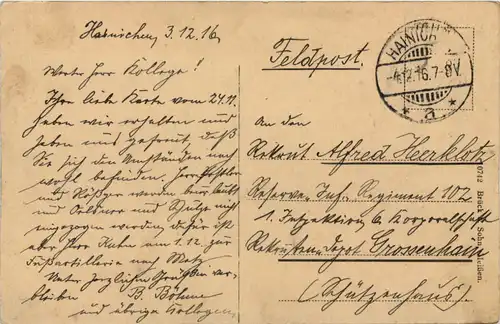 Hainichen, 3.12.16.
Werter Herr Kollege!
Ihre liebe Karte vom 24.11.
haben wir erhalten und
haben uns gefreut daß
Sie sich den Umständen nach
wohl befinden. Herr
und Rößger werden
und Oelsner und Schulze nicht
eingezogen worden, dafür ist
aber Herr Kuhn am 1.12. zur
Fußartillerie nach Metz
Unter herzlichen Grüßen ver-
bleiben B. Böhme
und übrige Kollegen.
Feldpost.
HAINICHEN
-4.12.16.7-8V.
* a *
An den
Rekrut Alfred Heerklotz
Reserve-Inf. Regiment 102
1. Inspektion 6 Korporalschaft
Rekruten-Depot Grossenhain
(Schützenhaus).
Brück & Sohn, Meißen.